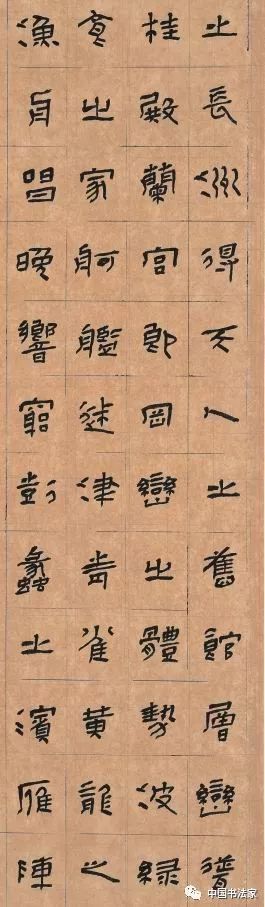 之長洲得天人之舊館層巒聳
桂殿蘭宮即岡巒之體勢波綠
食之家舸艦迷津青雀黃龍之
漁舟唱晚響窮彭蠡之濱雁陣
中国书法家